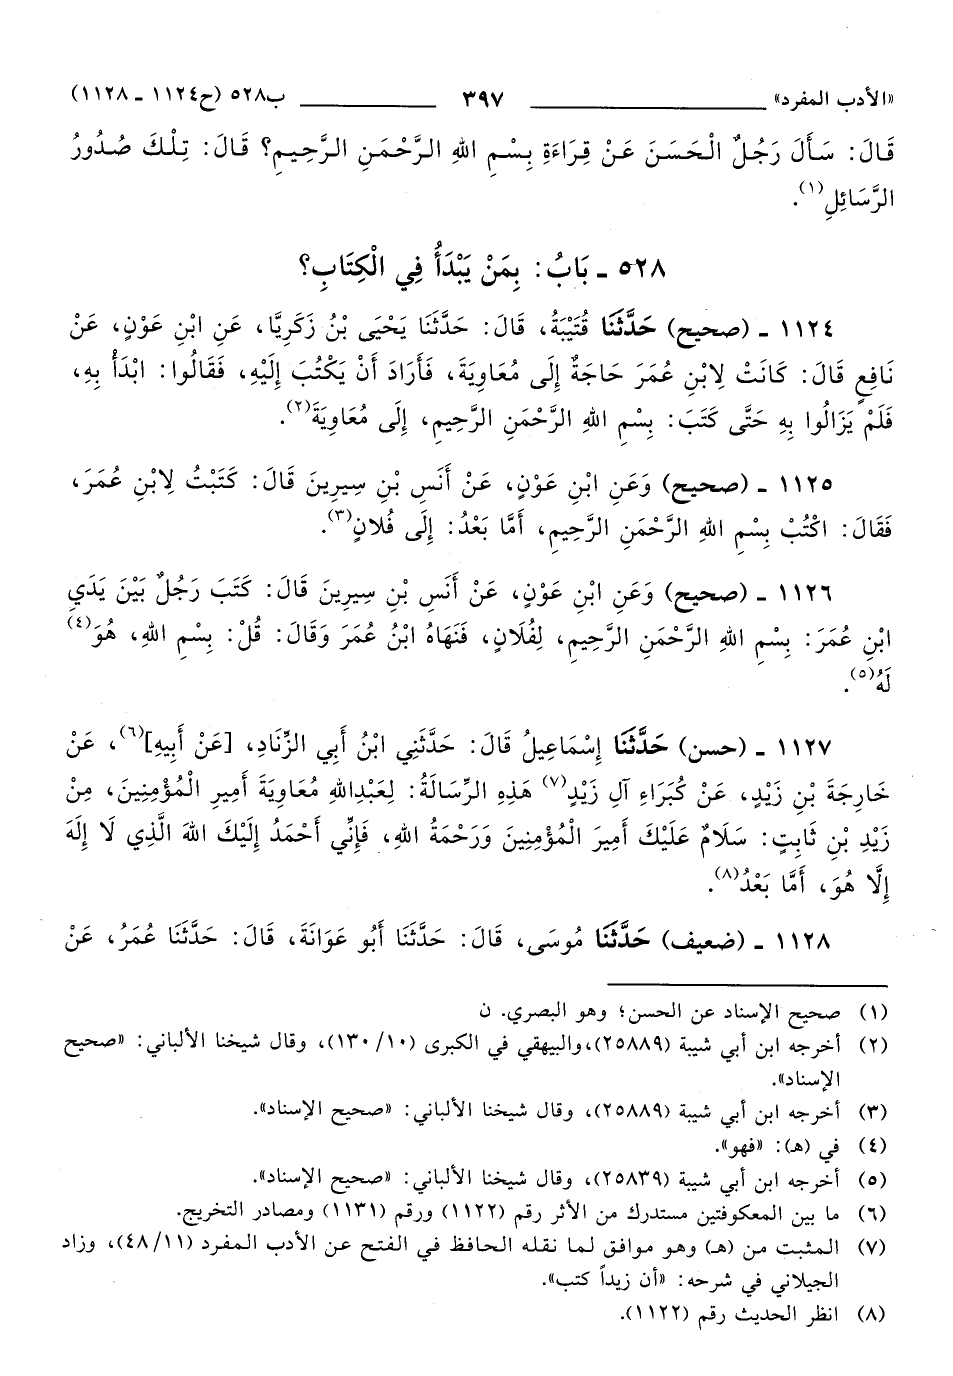 «الأدب المفرد» ٣٩٧ ب٥٢٨ (ح١١٢٤ ـ ١١٢٨)
قَالَ: سَأَلَ رَجُلٌ الْحَسَنَ عَنْ قِرَاءَةِ بِسْمِ اللهِ الرَّحْمَنِ الرَّحِيمِ؟ قَالَ: تِلْكَ صُدُورُ
الرَّسَائِلِ(١).
٥٢٨ ـ بَابُ: بِمَنْ يَبْدَأُ فِي الْكِتَابِ؟
١١٢٤ ـ (صحيح) حَدَّثَنَا قُتَيْبَةُ، قَالَ: حَدَّثَنَا يَحْيَى بْنُ زَكَرِيَّا، عَنِ ابْنِ عَوْنٍ، عَنْ
نَافِعٍ قَالَ: كَانَتْ لِابْنِ عُمَرَ حَاجَةٌ إِلَى مُعَاوِيَةَ، فَأَرَادَ أَنْ يَكْتُبَ إِلَيْهِ، فَقَالُوا: ابْدَأْ بِهِ،
فَلَمْ يَزَالُوا بِهِ حَتَّى كَتَبَ: بِسْمِ اللهِ الرَّحْمَنِ الرَّحِيمِ، إِلَى مُعَاوِيَةَ(٢).
١١٢٥ ـ (صحيح) وَعَنِ ابْنِ عَوْنٍ، عَنْ أَنَسِ بْنِ سِيرِينَ قَالَ: كَتَبْتُ لِابْنِ عُمَرَ،
فَقَالَ: اكْتُبْ بِسْمِ اللهِ الرَّحْمَنِ الرَّحِيمِ، أَمَّا بَعْدُ: إِلَى فُلَانٍ(٣).
١١٢٦ ـ (صحيح) وَعَنِ ابْنِ عَوْنٍ، عَنْ أَنَسِ بْنِ سِيرِينَ قَالَ: كَتَبَ رَجُلٌ بَيْنَ يَدَيِ
ابْنِ عُمَرَ: بِسْمِ اللهِ الرَّحْمَنِ الرَّحِيمِ، لِفُلَانٍ، فَنَهَاهُ ابْنُ عُمَرَ وَقَالَ: قُلْ: بِسْمِ اللهِ، هُوَ(٤)
لَهُ(٥).
١١٢٧ ـ (حسن) حَدَّثَنَا إِسْمَاعِيلُ قَالَ: حَدَّثَنِي ابْنُ أَبِي الزِّنَادِ، [عَنْ أَبِيهِ](٦)، عَنْ
خَارِجَةَ بْنِ زَيْدٍ، عَنْ كُبَرَاءِ آلِ زَيْدٍ(٧) هَذِهِ الرِّسَالَةُ: لِعَبْدِاللهِ مُعَاوِيَةَ أَمِيرِ الْمُؤْمِنِينَ، مِنْ
زَيْدِ بْنِ ثَابِتٍ: سَلَامٌ عَلَيْكَ أَمِيرَ الْمُؤْمِنِينَ وَرَحْمَةُ اللهِ، فَإِنِّي أَحْمَدُ إِلَيْكَ اللهَ الَّذِي لَا إِلَهَ
إِلَّا هُوَ، أَمَّا بَعْدُ(٨).
١١٢٨ ـ (ضعيف) حَدَّثَنَا مُوسَى، قَالَ: حَدَّثَنَا أَبُو عَوَانَةَ، قَالَ: حَدَّثَنَا عُمَرُ، عَنْ
(١) صحيح الإسناد عن الحسن؛ وهو البصري. ن
(٢) أخرجه ابن أبي شيبة (٢٥٨٨٩)،والبيهقي في الكبرى (١٠/ ١٣٠)، وقال شيخنا الألباني: «صحيح
الإسناد».
(٣) أخرجه ابن أبي شيبة (٢٥٨٨٩)، وقال شيخنا الألباني: «صحيح الإسناد».
(٤) في (هـ): «فهو».
(٥) أخرجه ابن أبي شيبة (٢٥٨٣٩)، وقال شيخنا الألباني: «صحيح الإسناد».
(٦) ما بين المعكوفتين مستدرك من الأثر رقم (١١٢٢) ورقم (١١٣١) ومصادر التخريج.
(٧) المثبت من (هـ) وهو موافق لما نقله الحافظ في الفتح عن الأدب المفرد (١١/ ٤٨)، وزاد
الجيلاني في شرحه: «أن زيداً كتب».
(٨) انظر الحديث رقم (١١٢٢).